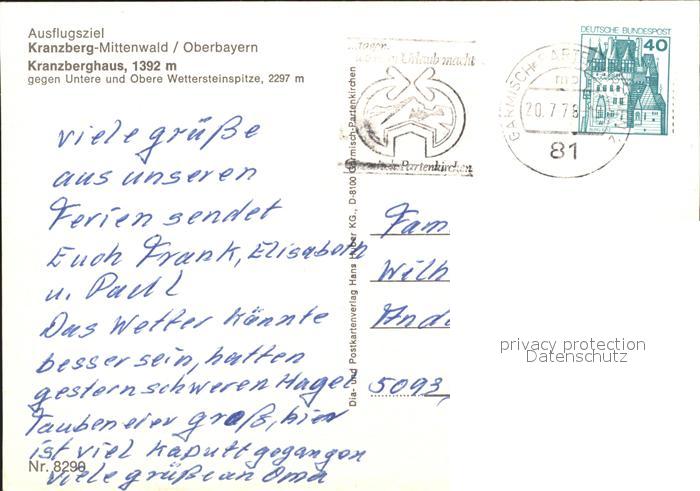 Ausflugsziel
Kranzberg-Mittenwald / Oberbayern
Kranzberghaus, 1392 m
gegen Untere und Obere Wettersteinspitze, 2297 m
viele grüße
aus unseren
Ferien sendet
Euch Frank, Elisabeth
u. Paul
Das Wetter könnte
besser sein, hatten
gestern schweren Hagel
Taubeneier groß, hier
ist viel kaputt gegangen
viele grüße an Oma
Nr. 8290
Dia- und Postkartenverlag Hans Huber KG., D-8100 Garmisch-Partenkirchen
Urlaub macht
Garmisch-Partenkirchen
20.7.78
81
DEUTSCHE BUNDESPOST
40
Fam
Wilh
5093,
privacy protection
Datenschutz